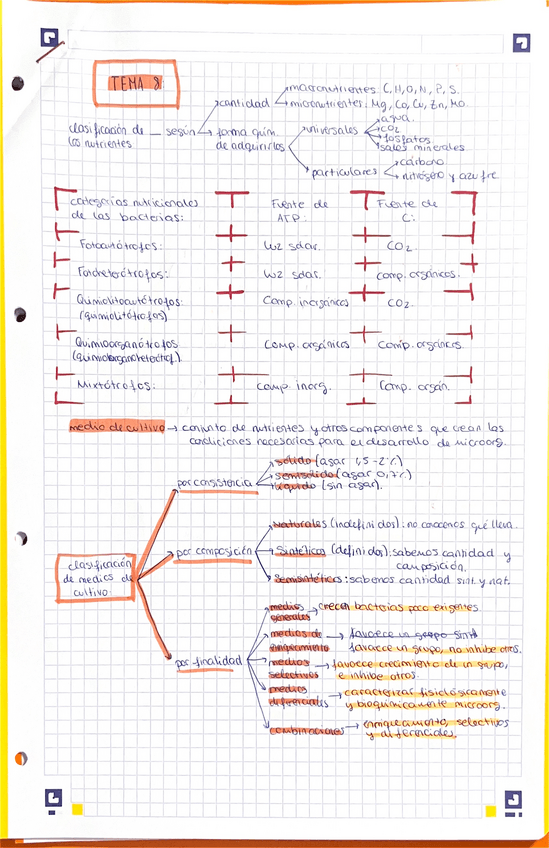 TEMA 8:
macronutrientes: C, H, O, N, P, S.
cantidad
micronutrientes: Mg, Ca, Cu, Zn, Mo.
clasificación de
los nutrientes
según
forma quím.
de adquirirlos
universales
agua.
CO2
fosfatos
sales minerales
particulares
carbono
nitrógeno y azufre
categorías nutricionales
de las bacterias:
Fuente de
ATP:
Fuente de
C:
Fotoautótrofos:
luz solar.
CO2.
Fotoheterótrofos:
luz solar.
comp. orgánicos.
Quimiolitoautótrofos:
(quimiolitótrofos)
Comp. inorgánicos
CO2.
Quimioorganótrofos
(quimioorganoheterótrof.)
Comp. orgánicos
Comp. orgánicos
Mixtótrofos:
Comp. inorg.
Comp. orgán.
medio de cultivo → conjunto de nutrientes y otros componentes que crean las
condiciones necesarias para el desarrollo de microorg.
clasificación
de medios de
cultivo:
por consistencia
sólido (agar 1,5-2%)
semisólido (agar 0,7%)
líquido (sin agar).
por composición
Naturales (indefinidos): no conocemos qué lleva.
Sintéticos (definidos): sabemos cantidad y
composición.
Semisintéticos: sabemos cantidad sint. y nat.
por finalidad
medios
generales
→ crecen bacterias poco exigentes
medios de
enriquecimiento
→ favorece un grupo sin
favorece un grupo, no inhibe otros.
medios
selectivos
→ favorece crecimiento de un grupo,
e inhibe otros.
medios
diferenciales
→ caracterizar fisiológicamente
y bioquímicamente microorg.
combinaciones
→ enriquecimiento, selectivos
y diferenciales.